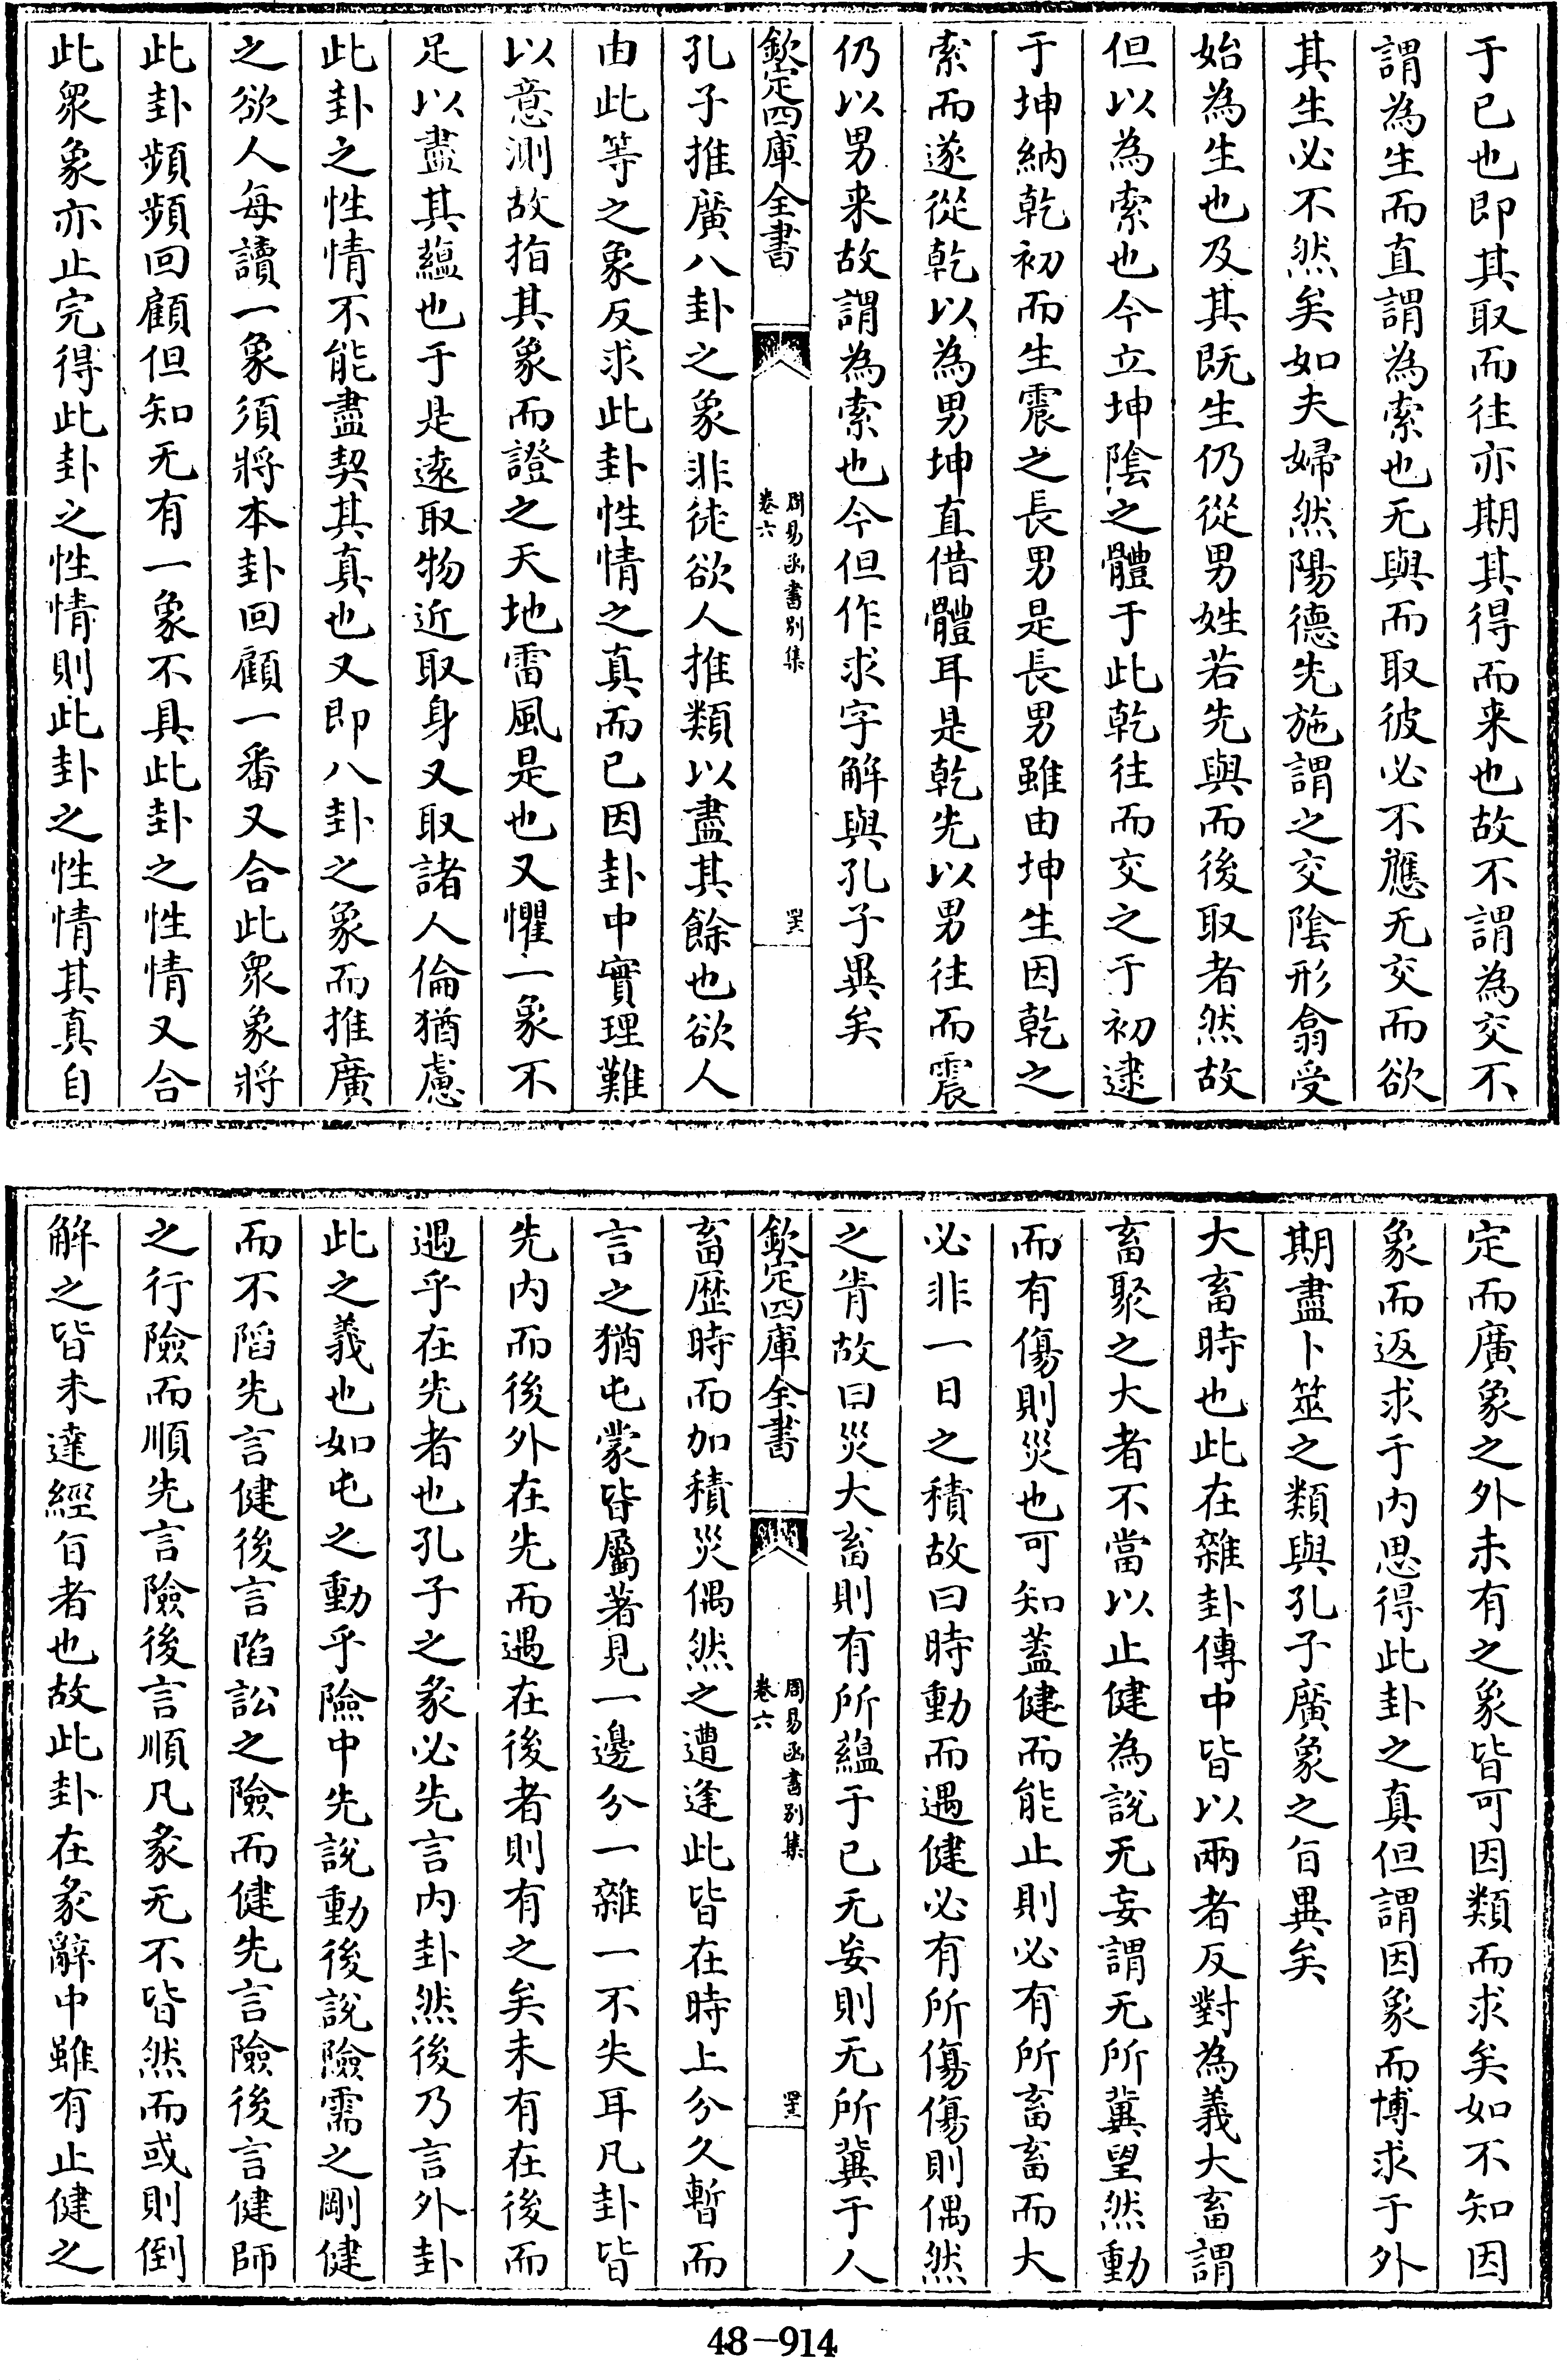 于已也即其取而往亦期其得而来也故不謂為交不
謂為生而直謂為索也无與而取彼必不應无交而欲
其生必不然矣如夫婦然陽德先施謂之交陰形翕受
始為生也及其既生仍從男姓若先與而後取者然故
但以為索也今立坤陰之體于此乾往而交之于初逮
于坤納乾初而生震之長男是長男雖由坤生因乾之
索而遂從乾以為男坤直借體耳是乾先以男往而震
仍以男来故謂為索也今但作求字解與孔子異矣
欽定四庫全書
周易函書別集
卷六
孔子推廣八卦之象非徒欲人推類以盡其餘也欲人
由此等之象反求此卦性情之真而已因卦中實理難
以意測故指其象而證之天地雷風是也又懼一象不
足以盡其蘊也于是遠取物近取身又取諸人倫猶慮
此卦之性情不能盡契其真也又即八卦之象而推廣
之欲人每讀一象須將本卦回顧一番又合此眾象將
此卦頻頻回顧但知无有一象不具此卦之性情又合
此眾象亦止完得此卦之性情則此卦之性情其真自
定而廣象之外未有之象皆可因類而求矣如不知因
象而返求于内思得此卦之真但謂因象而博求于外
期盡卜筮之類與孔子廣象之㫖異矣
大畜時也此在雜卦傳中皆以兩者反對為義大畜謂
畜聚之大者不當以止健為說无妄謂无所冀望然動
而有傷則災也可知蓋健而能止則必有所畜畜而大
必非一日之積故曰時動而遇健必有所傷傷則偶然
之眚故曰災大畜則有所蘊于已无妄則无所冀于人
欽定四庫全書
周易函書別集
卷六
畜歴時而加積災偶然之遭逢此皆在時上分久暫而
言之猶屯蒙皆屬著見一邊分一雜一不失耳凡卦皆
先内而後外在先而遇在後者則有之矣未有在後而
遇乎在先者也孔子之彖必先言内卦然後乃言外卦
此之義也如屯之動乎險中先說動後說險需之剛健
而不陷先言健後言陷訟之險而健先言險後言健師
之行險而順先言險後言順凡彖无不皆然而或則倒
解之皆未達經㫖者也故此卦在彖辭中雖有止健之
48-914